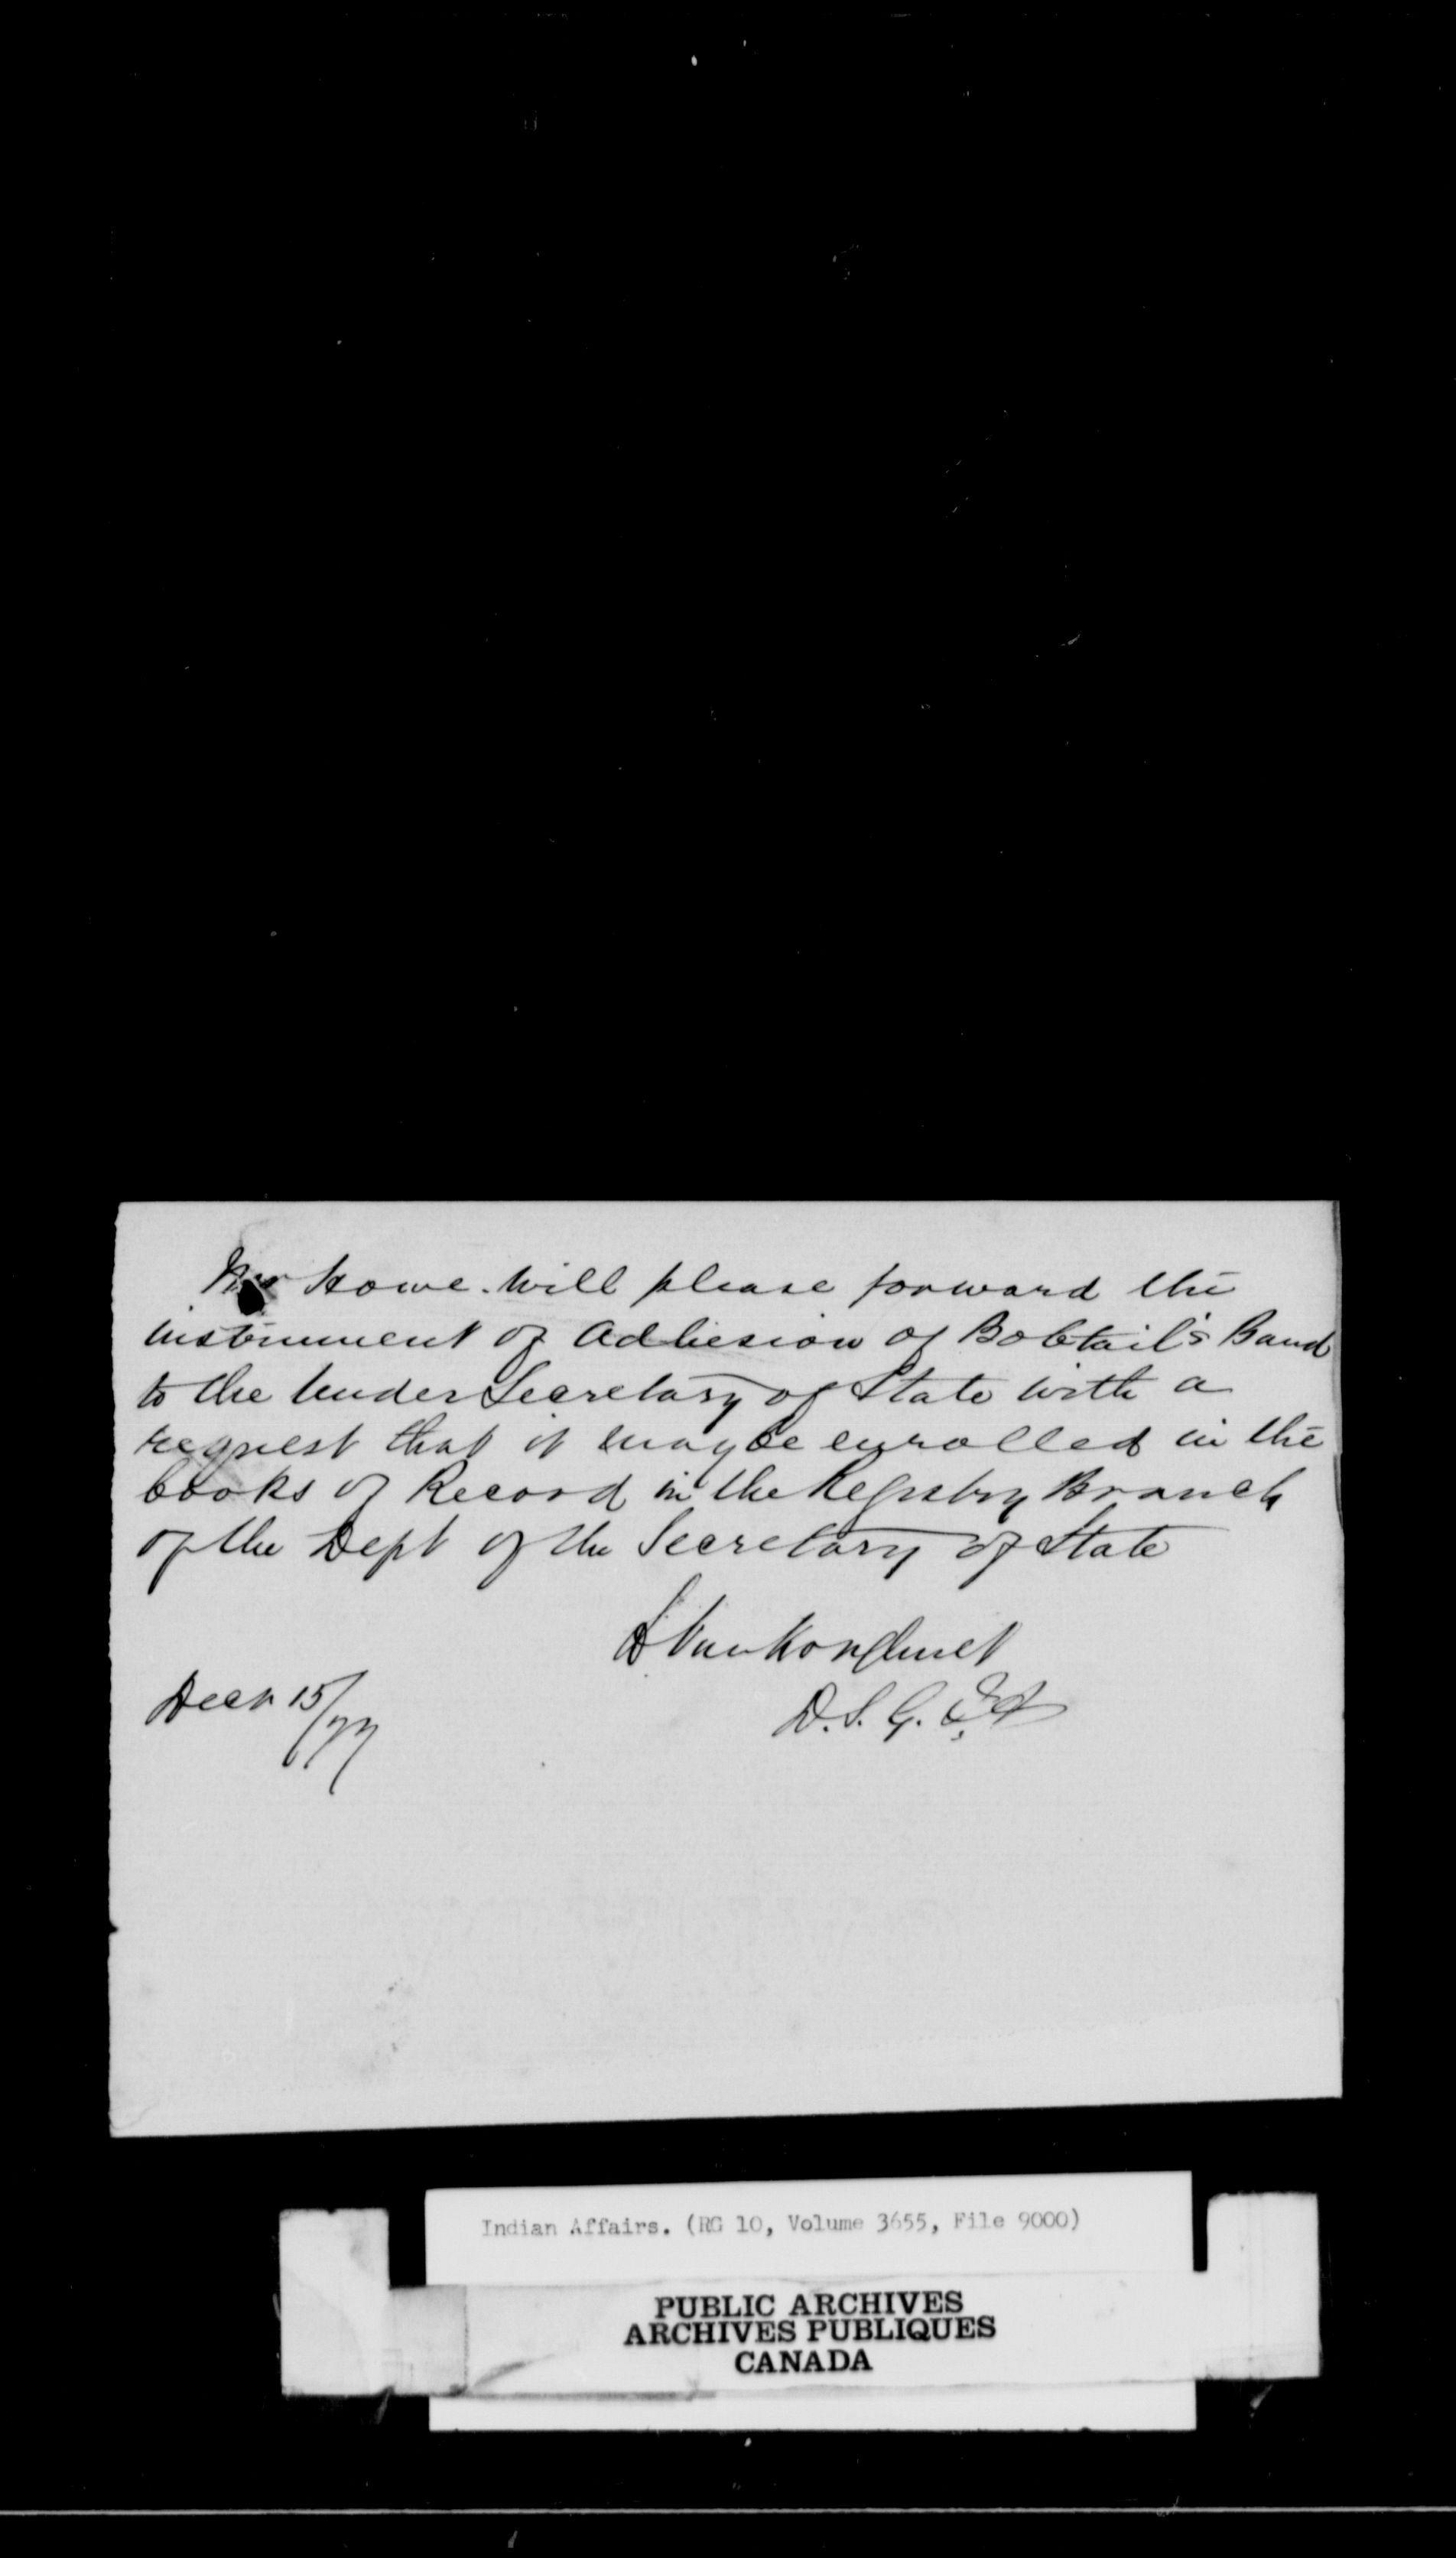 Mr Howe. Will please forward the
instrument of Adhesion of Bobtail's Band
to the Under Secretary of State with a
request that it may be enrolled in the
books of Record in the Registry Branch
of the Dept of the Secretary of State
L VanKoughnet
Decr 15/77
D.S.G. I.A
Indian Affairs. (RG 10, Volume 3655, File 9000)
PUBLIC ARCHIVES
ARCHIVES PUBLIQUES
CANADA